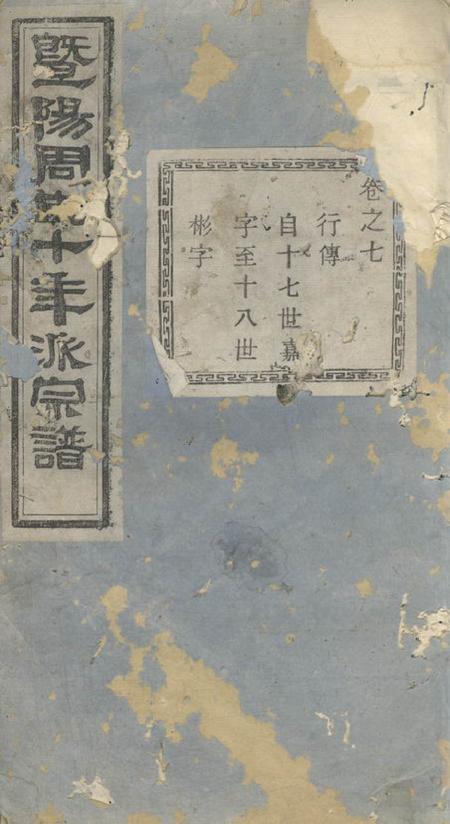 暨陽周氏十年派宗譜
卷之七
行傳
自十七世嘉
字至十八世
彬字